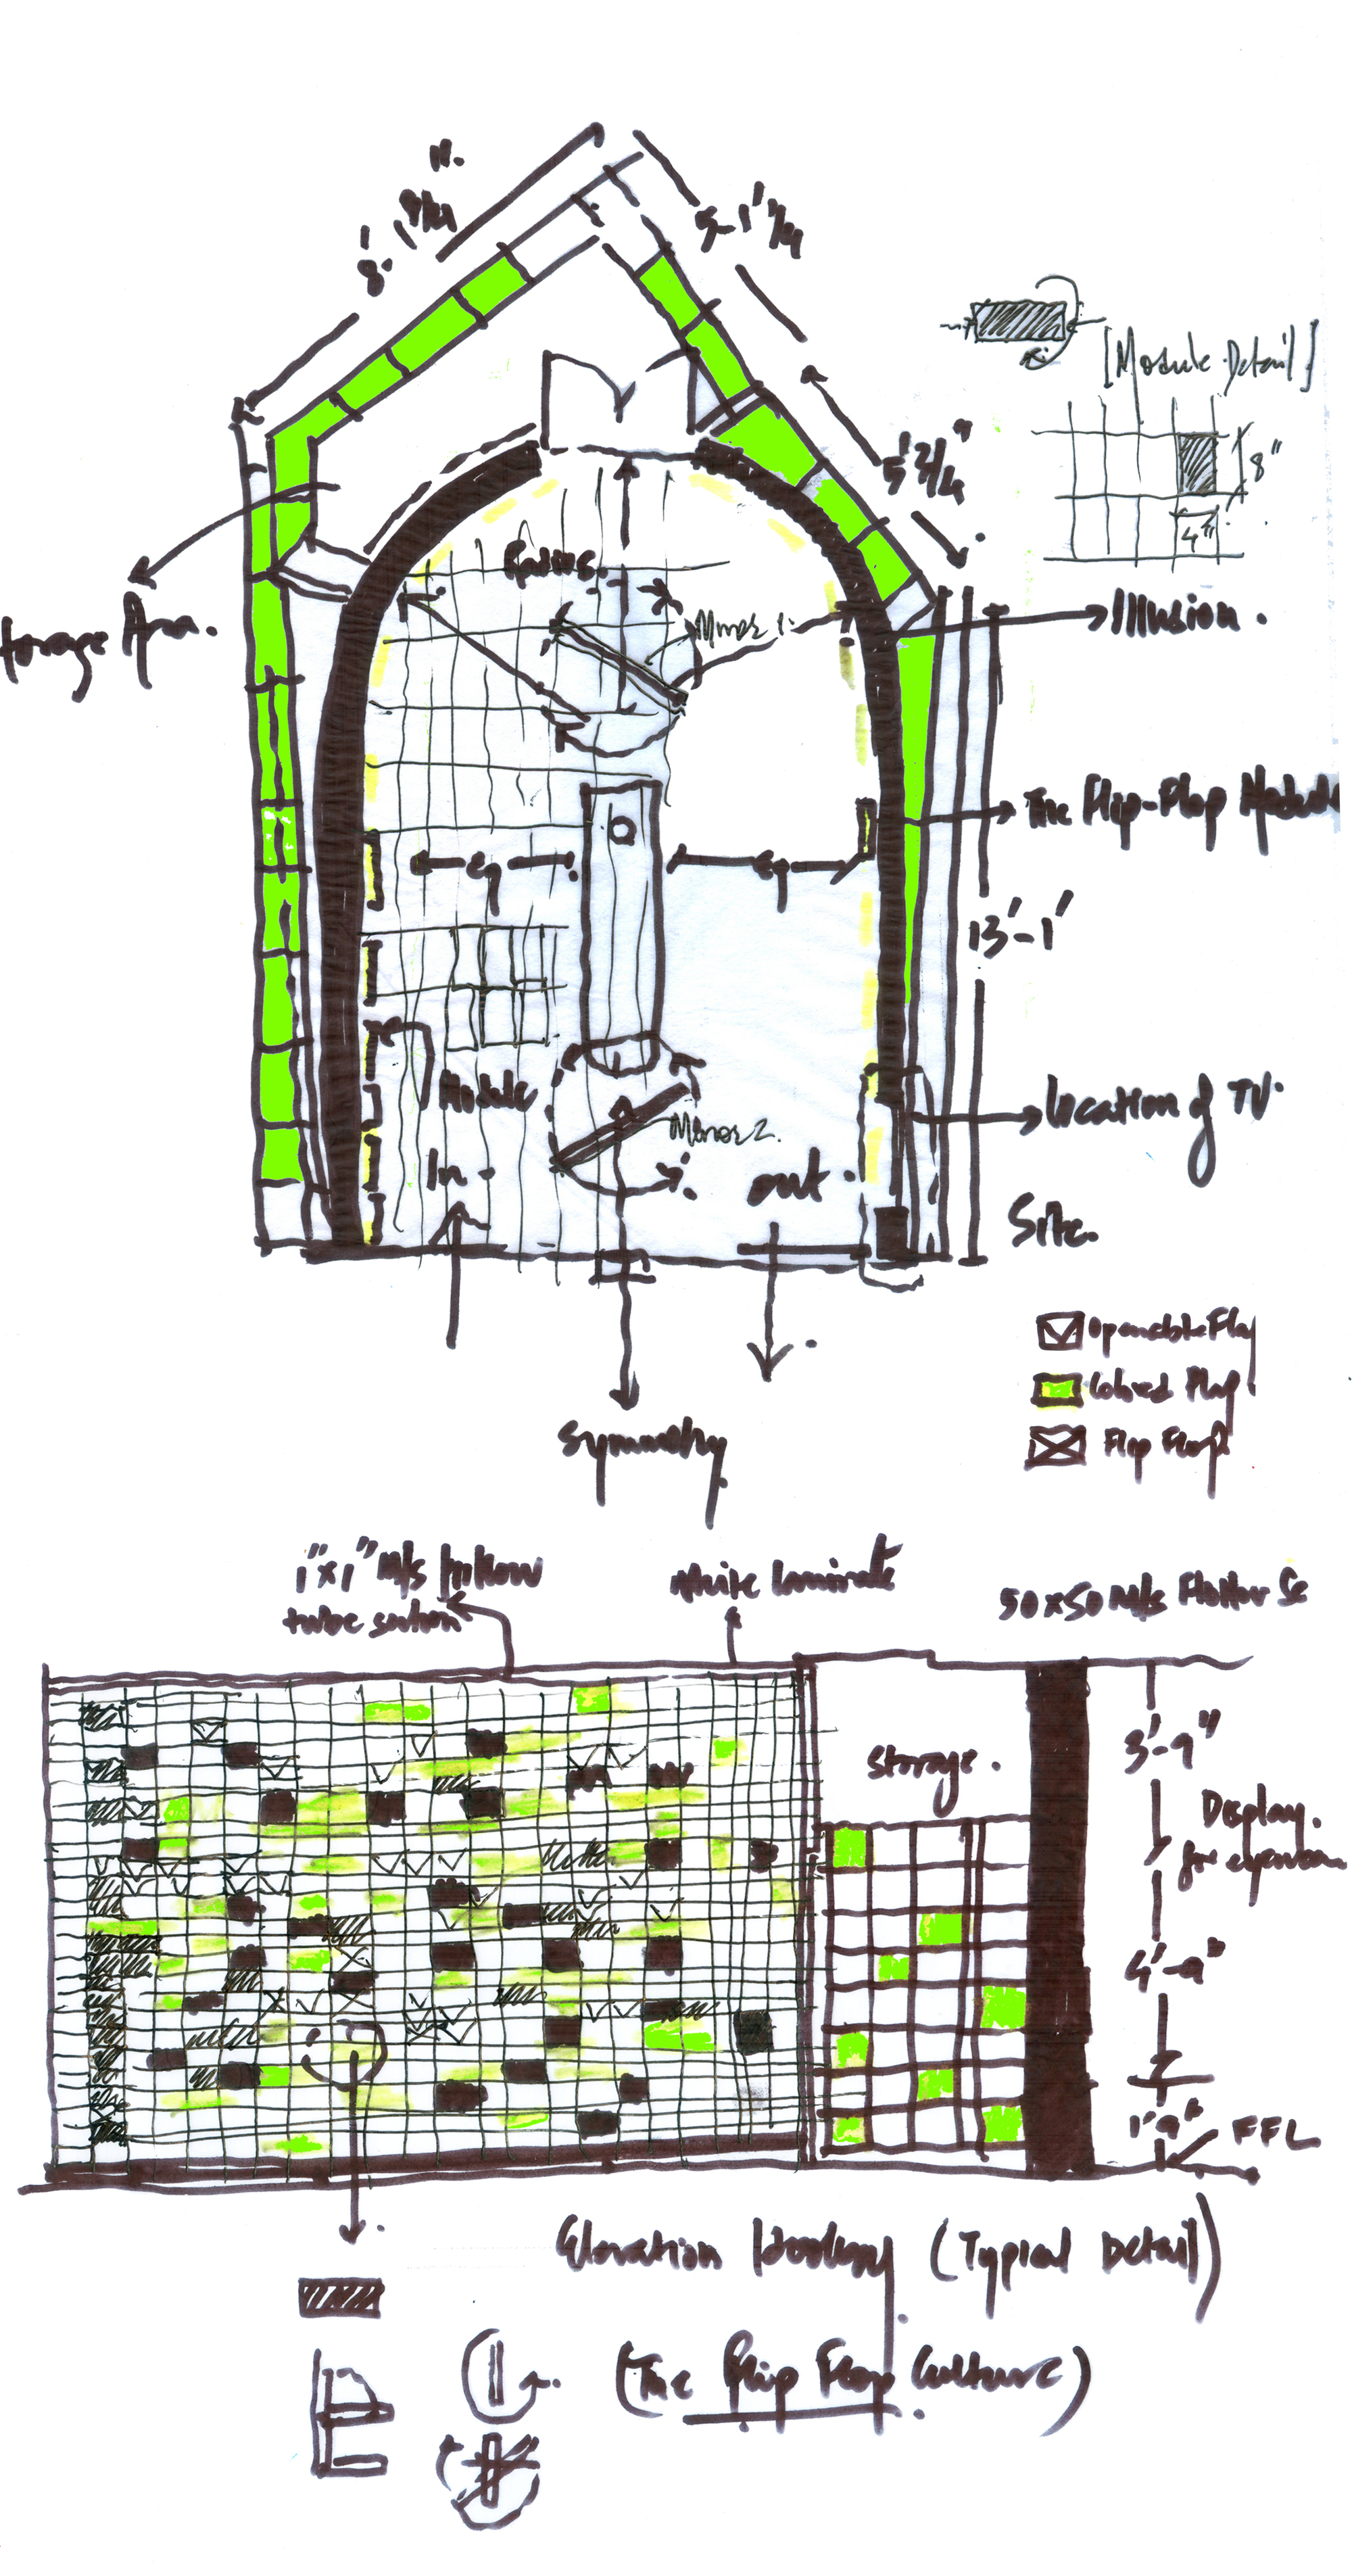 8'.1 3/4".
5-1' 1/4
[Module Detail]
5' 3/4"
8"
4"
Illusion.
Radius.
Mirror 1.
Storage Area.
The Flip-Flop Module
eq
eq
13'-1'
Module
Mirror 2.
Location of TV.
In -
out.
Site.
Openable Flap
Colored Flap
Flip Flop
Symmetry
1"x1" M/s Hollow
tube section
White laminate
50x50 M/s
3'-9"
Storage.
Display.
for eyewear
4'-9"
1'9"
FFL
Elevation (Typical Detail)
(The Flip Flop Culture)